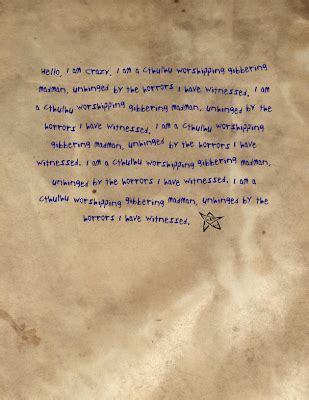 Hello, I am crazy. I am a Cthulhu worshipping gibbering
madman, unhinged by the horrors I have witnessed. I am
a Cthulhu worshipping gibbering madman, unhinged by the
horrors I have witnessed. I am a Cthulhu worshipping
gibbering madman, unhinged by the horrors I have
witnessed. I am a Cthulhu worshipping gibbering madman,
unhinged by the horrors I have witnessed. I am a
Cthulhu worshipping gibbering madman, unhinged by the
horrors I have witnessed.